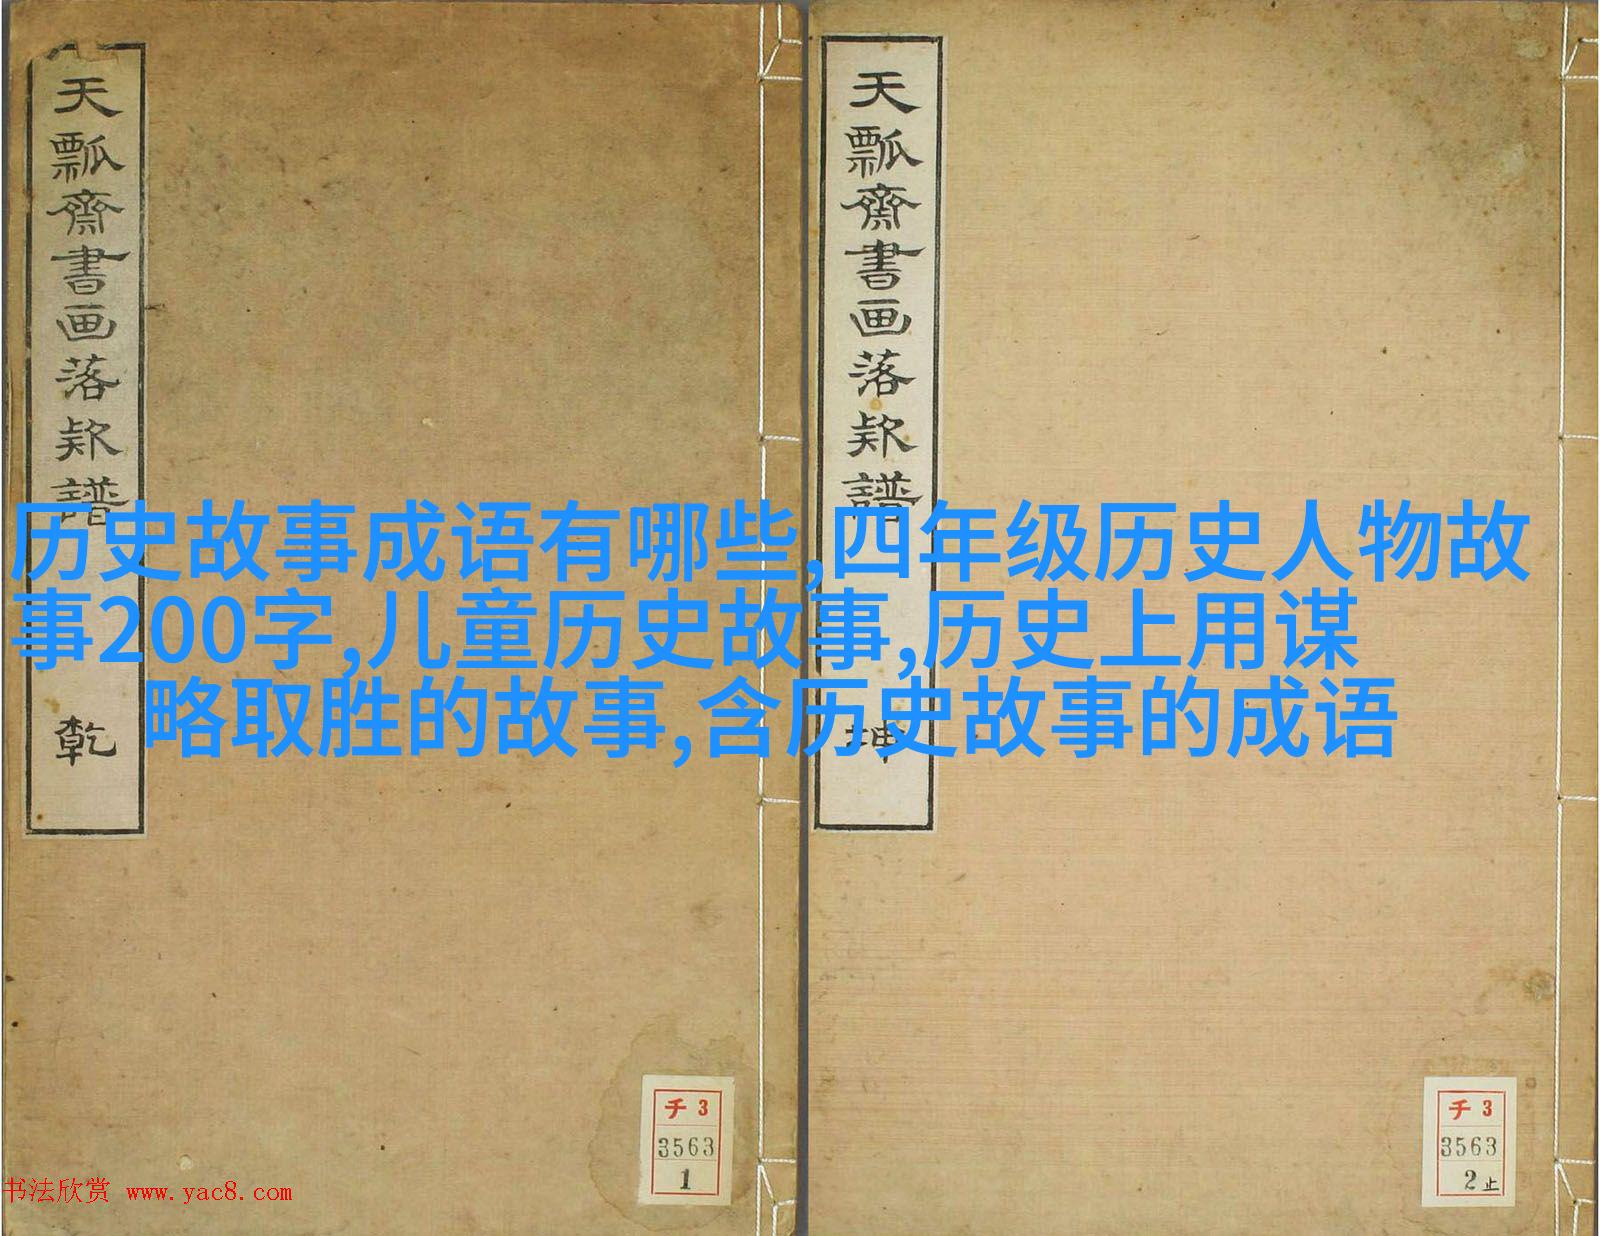 天瓢齋書画落款譜
乾
天瓢齋書画落款譜
坤
历史故事成语有哪些,四年级历史人物故
事200字,儿童历史故事,历史上用谋
略取胜的故事,含历史故事的成语
チ3
3563
1
チ3
3563
2止
书法欣赏 www.yac8.com